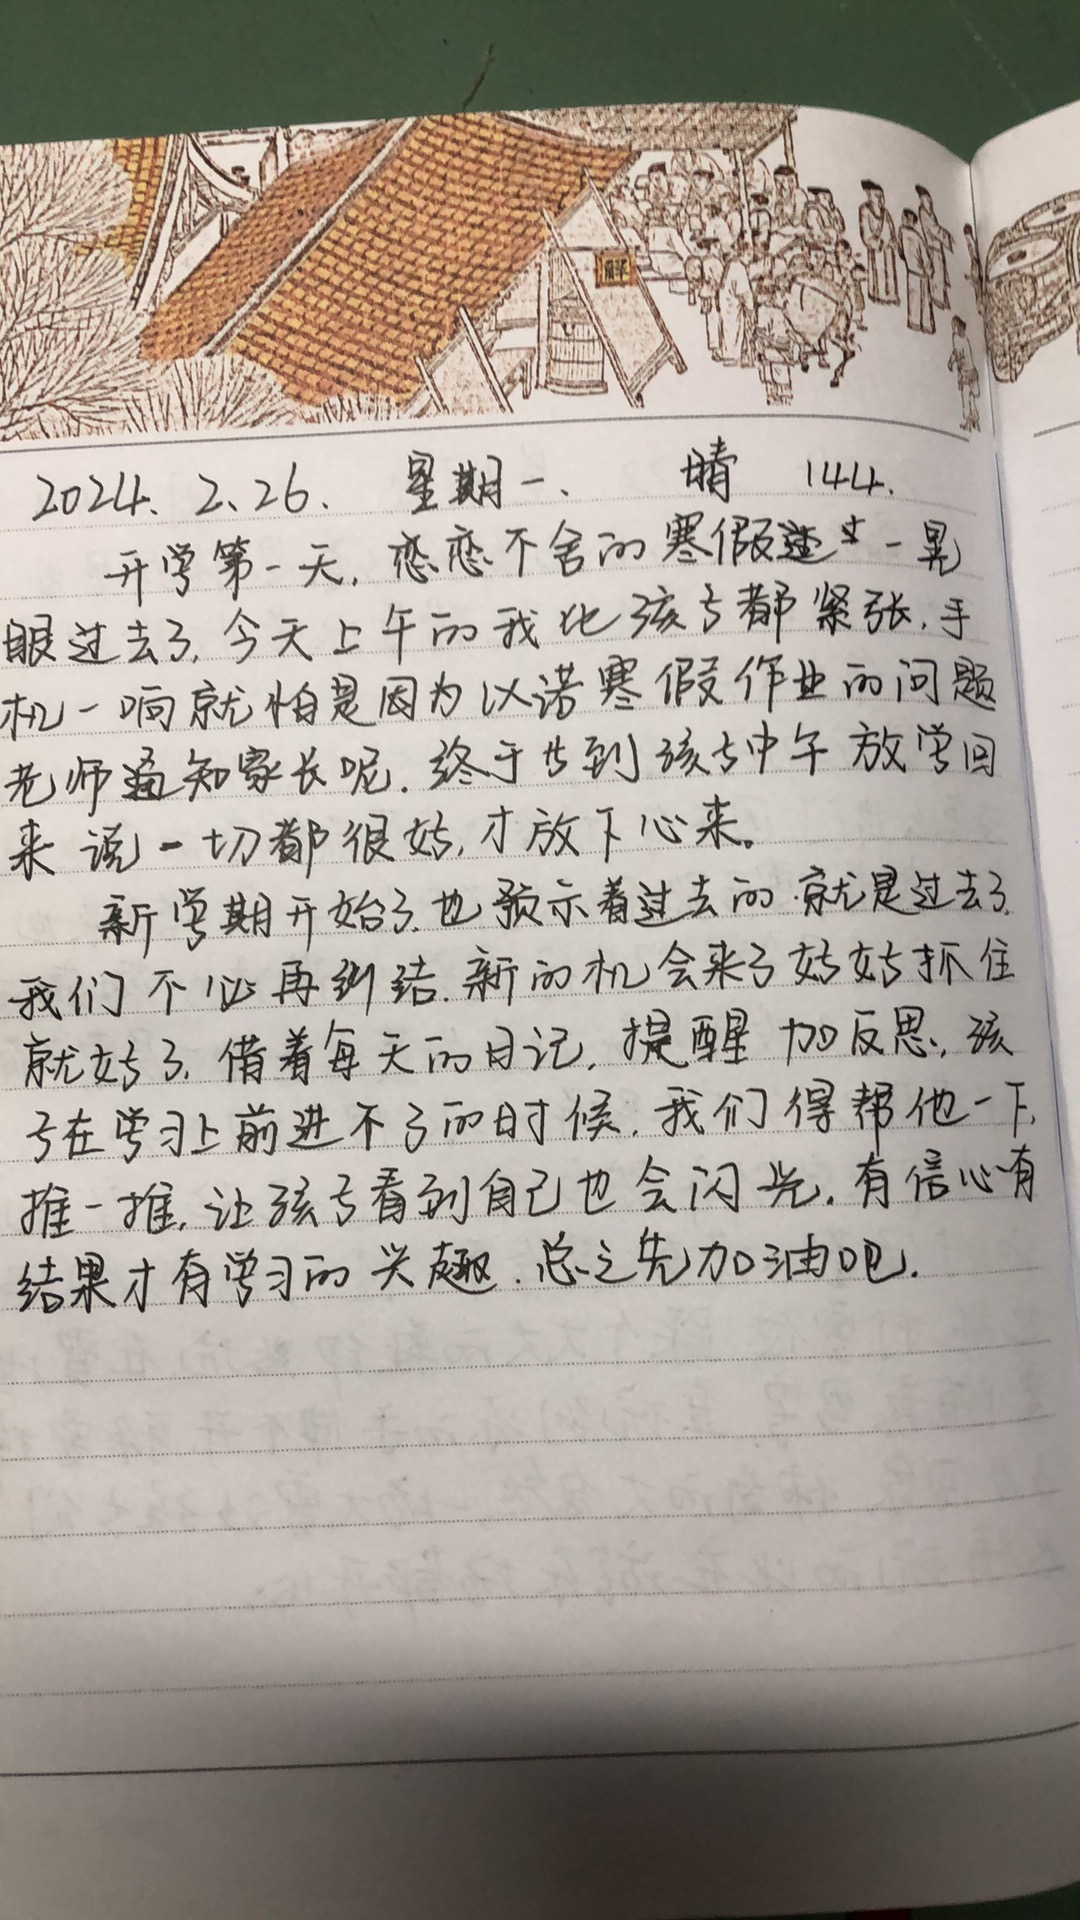 2024. 2.26. 星期一. 晴 144.
开学第一天, 恋恋不舍的寒假 一晃
眼过去了, 今天上午的我比孩子都紧张, 手
机一响就怕是因为以诺寒假作业的问题
老师通知家长呢. 终于 到孩子中午放学回
来说一切都很好, 才放下心来。
新学期开始了, 也预示着过去的就是过去了,
我们不必再纠结. 新的机会来了好好抓住
就好了, 借着每天的日记, 提醒加反思, 孩
子在学习上前进不了的时候, 我们得帮他一下,
推一推, 让孩子看到自己也会闪光, 有信心有
结果才有学习的兴趣. 总之先加油吧.